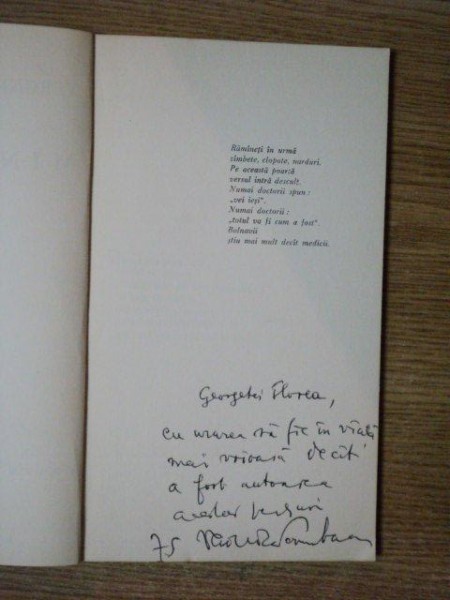 Rămîneți în urmă
zîmbete, clopote, nardari.
Pe această poartă
versul intră desculț.
Numai doctorii spun:
„vei ieși“.
Numai doctorii:
„totul va fi cum a fost“.
Bolnavii
știu mai mult decît medicii.
Georgetei Florea,
cu urarea să fie în viață
mai voioasă decît
a fost autoarea
acestor versuri
75